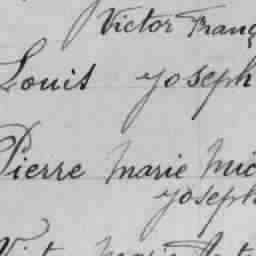 Victor Franç
Louis Joseph
Pierre Marie Mic
Joseph